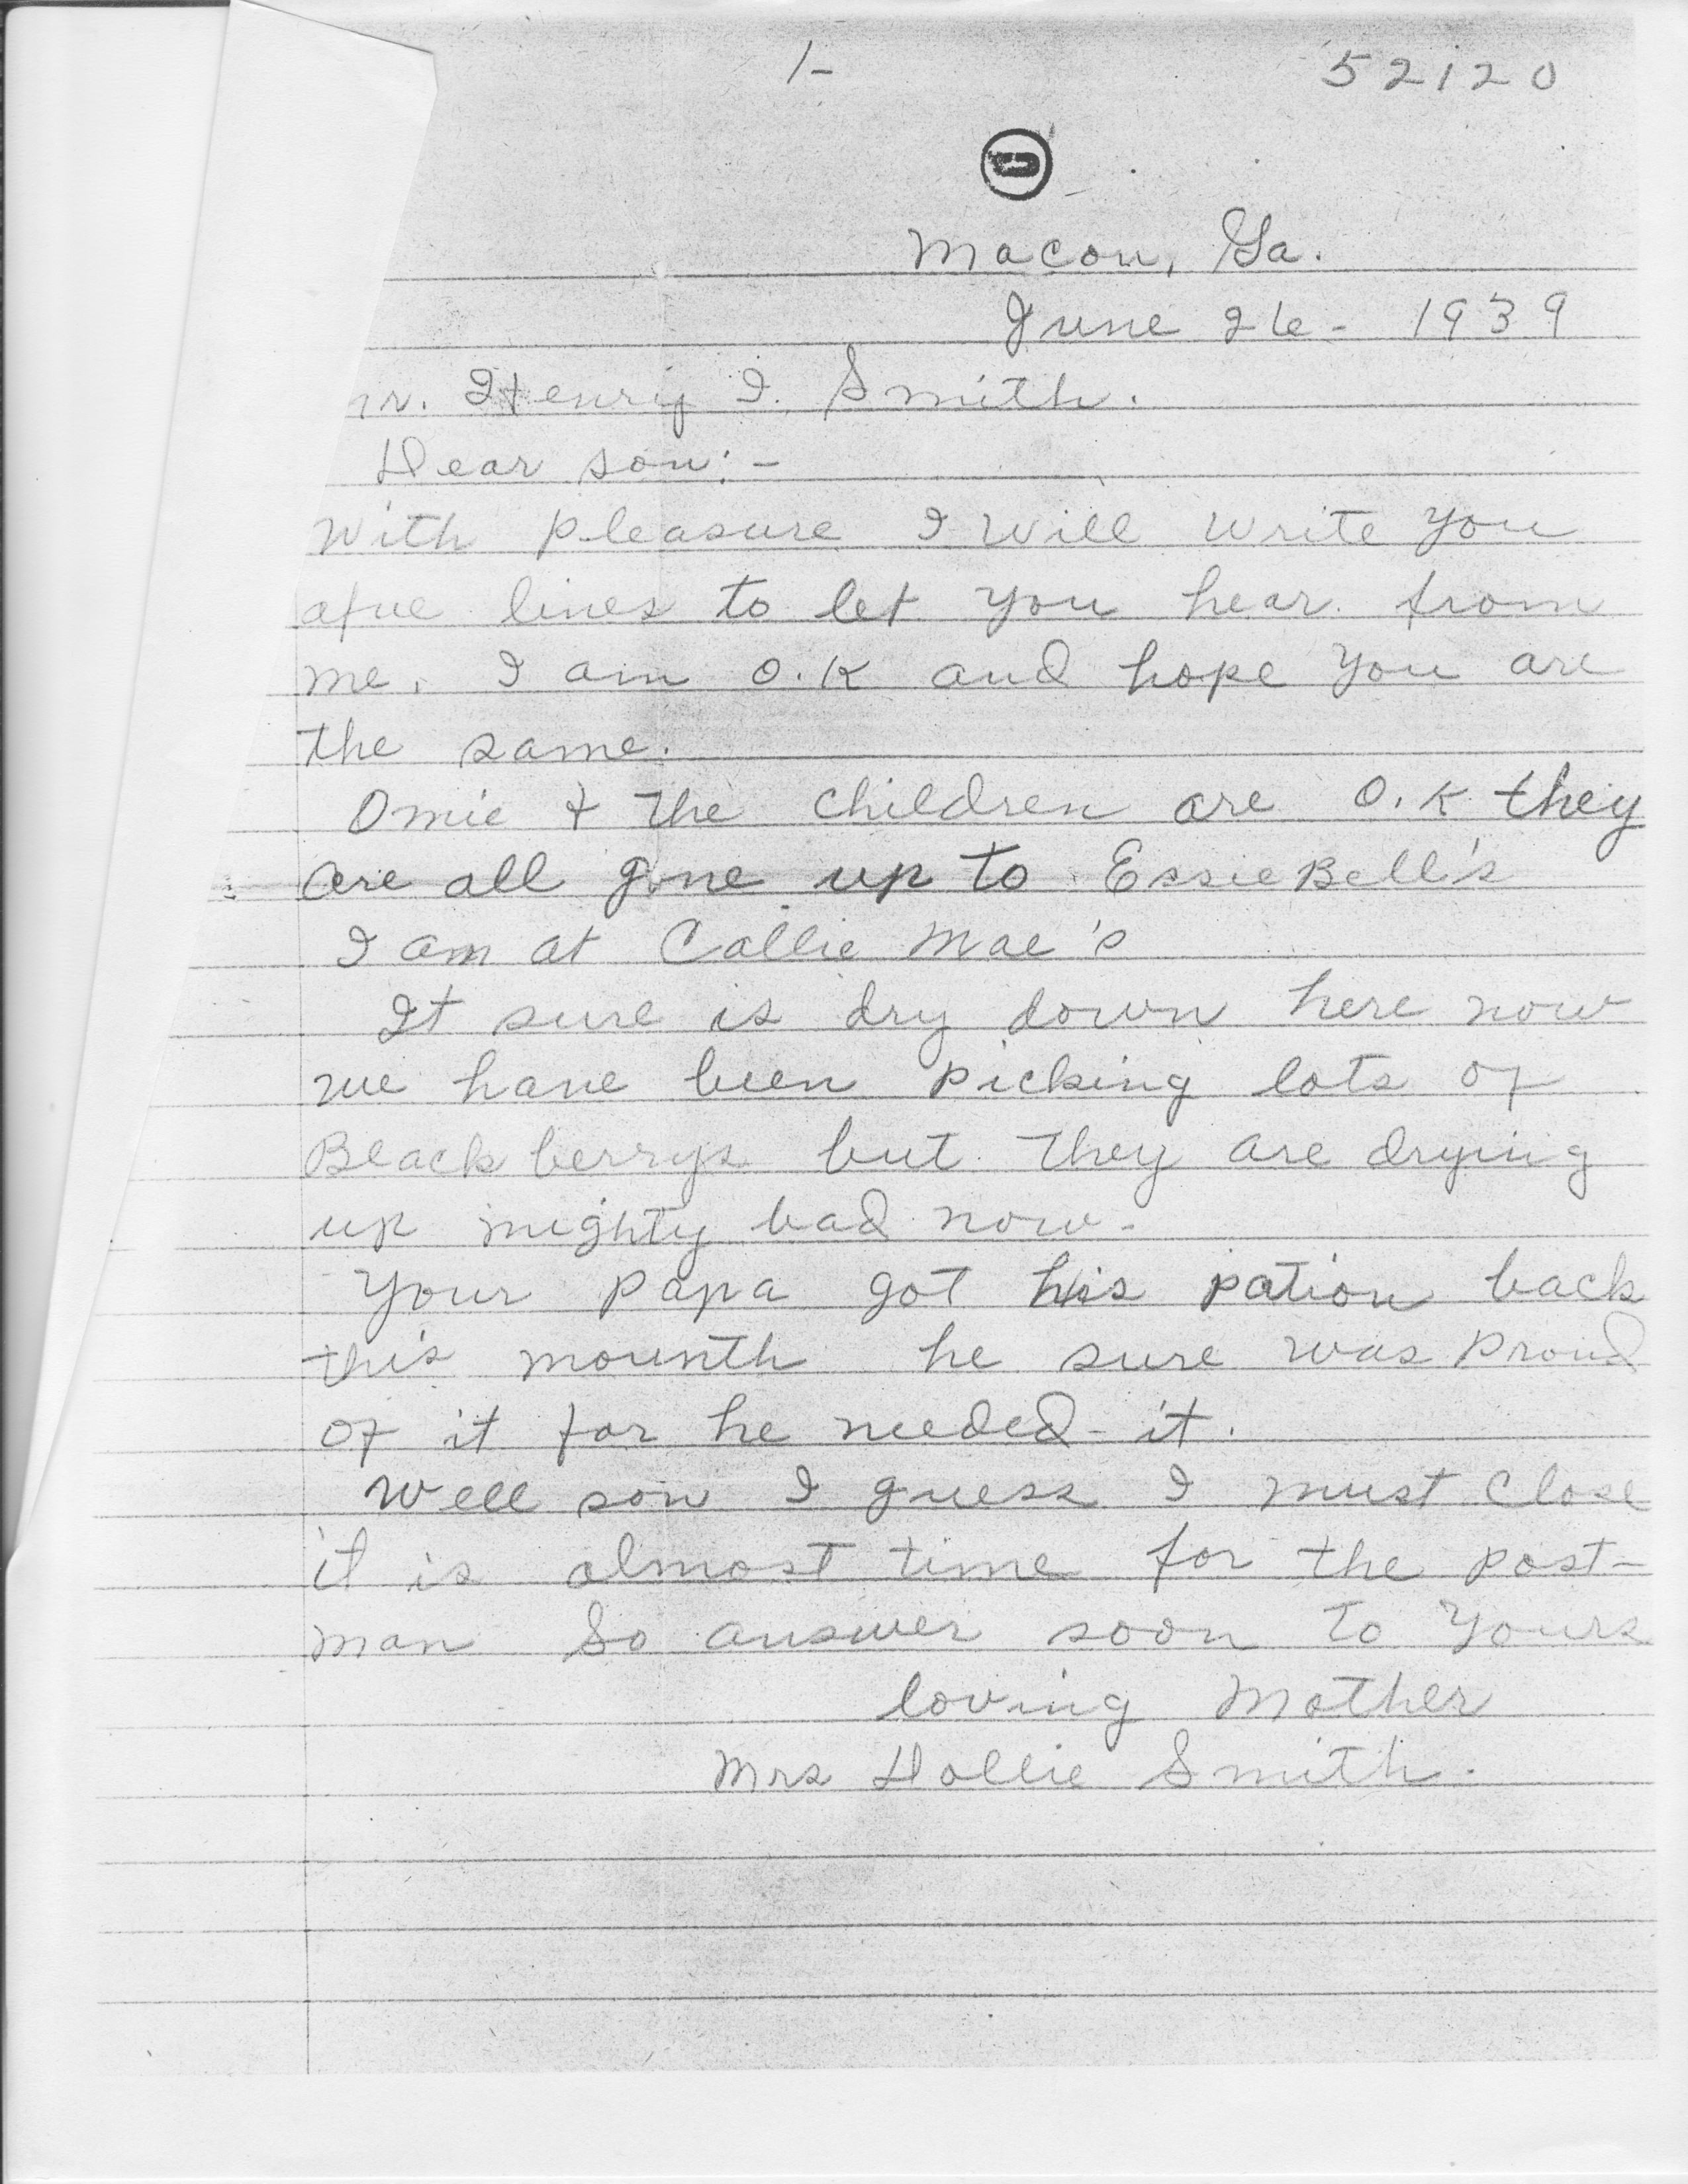 1-
52120
Macon, Ga.
June 26- 1939
mr. Henry I. Smith.
Dear son:-
With pleasure I will write you
afue lines to let you hear from
me. I am O.K and hope you are
the same.
Omie + the children are O.K they
are all gone up to Essie Bell's
I am at Callie Mae's
It sure is dry down here now
we have been picking lots of
Black berrys but they are drying
up mighty bad now-
Your papa got his pation back
this mounth he sure was proud
of it for he needed it.
Well son I guess I must close
it is almost time for the post-
man So answer soon to yours
loving Mother
Mrs Dollie Smith.